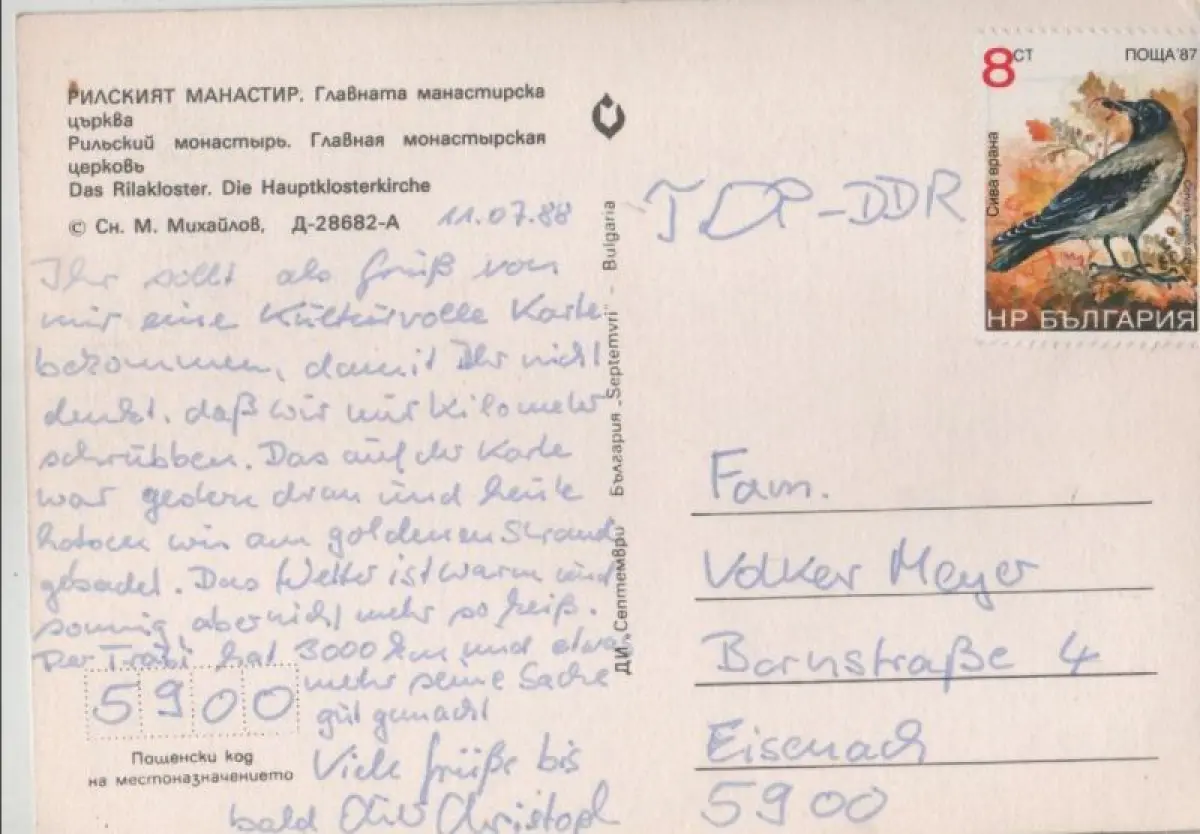 РИЛСКИЯТ МАНАСТИР. Главната манастирска
църква
Рильский монастырь. Главная монастырская
церковь
Das Rilakloster. Die Hauptklosterkirche
© Сн. М. Михайлов, Д-28682-А
11.07.88
Ihr sollt als Gruß von
mir eine Kulturvolle Karte
bekommen, damit Ihr nicht
denkt, daß wir nur Kilometer
schrubben. Das auf der Karte
war gestern dran und heute
haben wir am goldenen Strand
gebadet. Das Wetter ist warm und
sonnig aber nicht mehr so heiß.
Der Trabi hat 3000 km und etwas
mehr seine Sache
gut gemacht
Viele Grüße bis
bald Christoph
5900
Пощенски код
на местоназначението
ДИ „Септември" България „Septemvri" - Bulgaria
8 СТ ПОЩА'87
Сива врана
НР БЪЛГАРИЯ
ГДР-DDR
Fam.
Volker Meyer
Bornstraße 4
Eisenach
5900